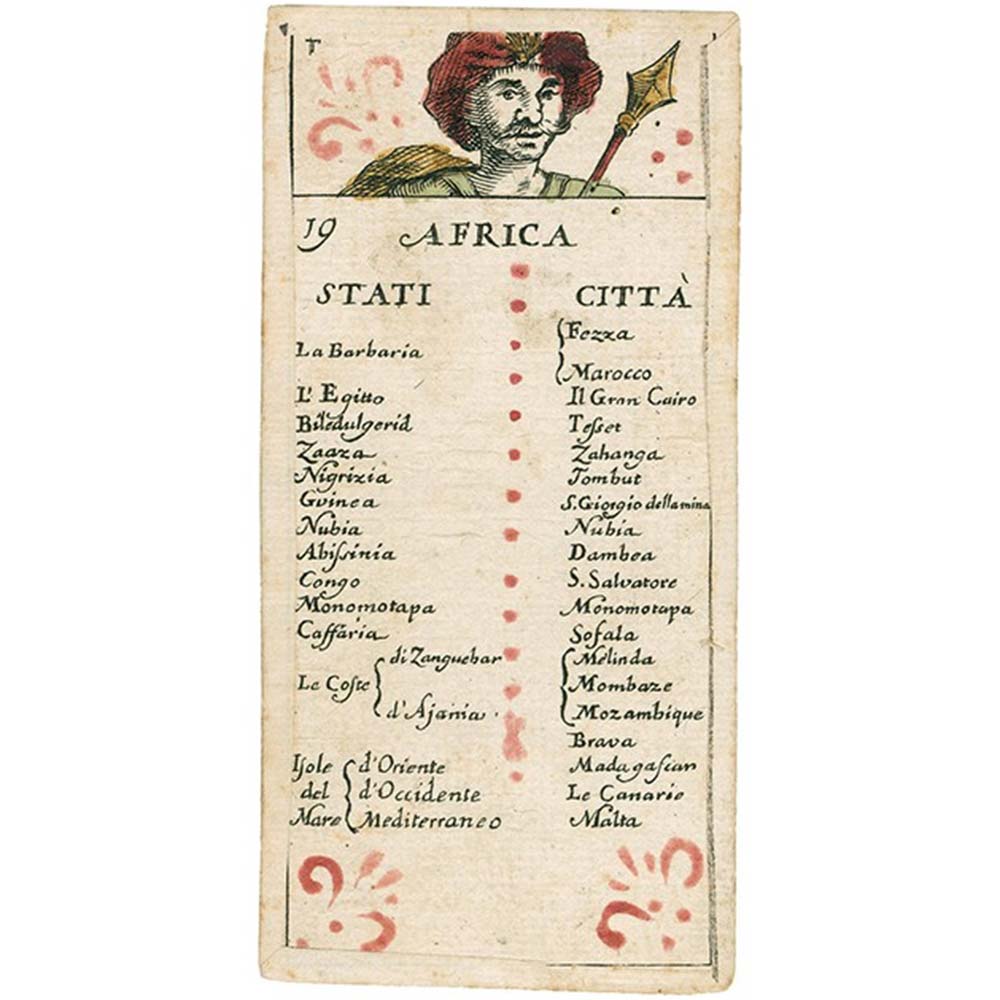 T
19 AFRICA
STATI CITTÀ
La Barbaria Fezza
Marocco
L'Egitto Il Gran Cairo
Biledulgerid Tesset
Zaaza Zahanga
Nigrizia Tombut
Guinea S. Giorgio della mina
Nubia Nubia
Abissinia Dambea
Congo S. Salvatore
Monomotapa Monomotapa
Caffaria Sofala
Le Coste di Zanguebar Melinda
Mombaze
d'Ajania Mozambique
Brava
Isole d'Oriente Madagascar
del d'Occidente Le Canarie
Mare Mediterraneo Malta